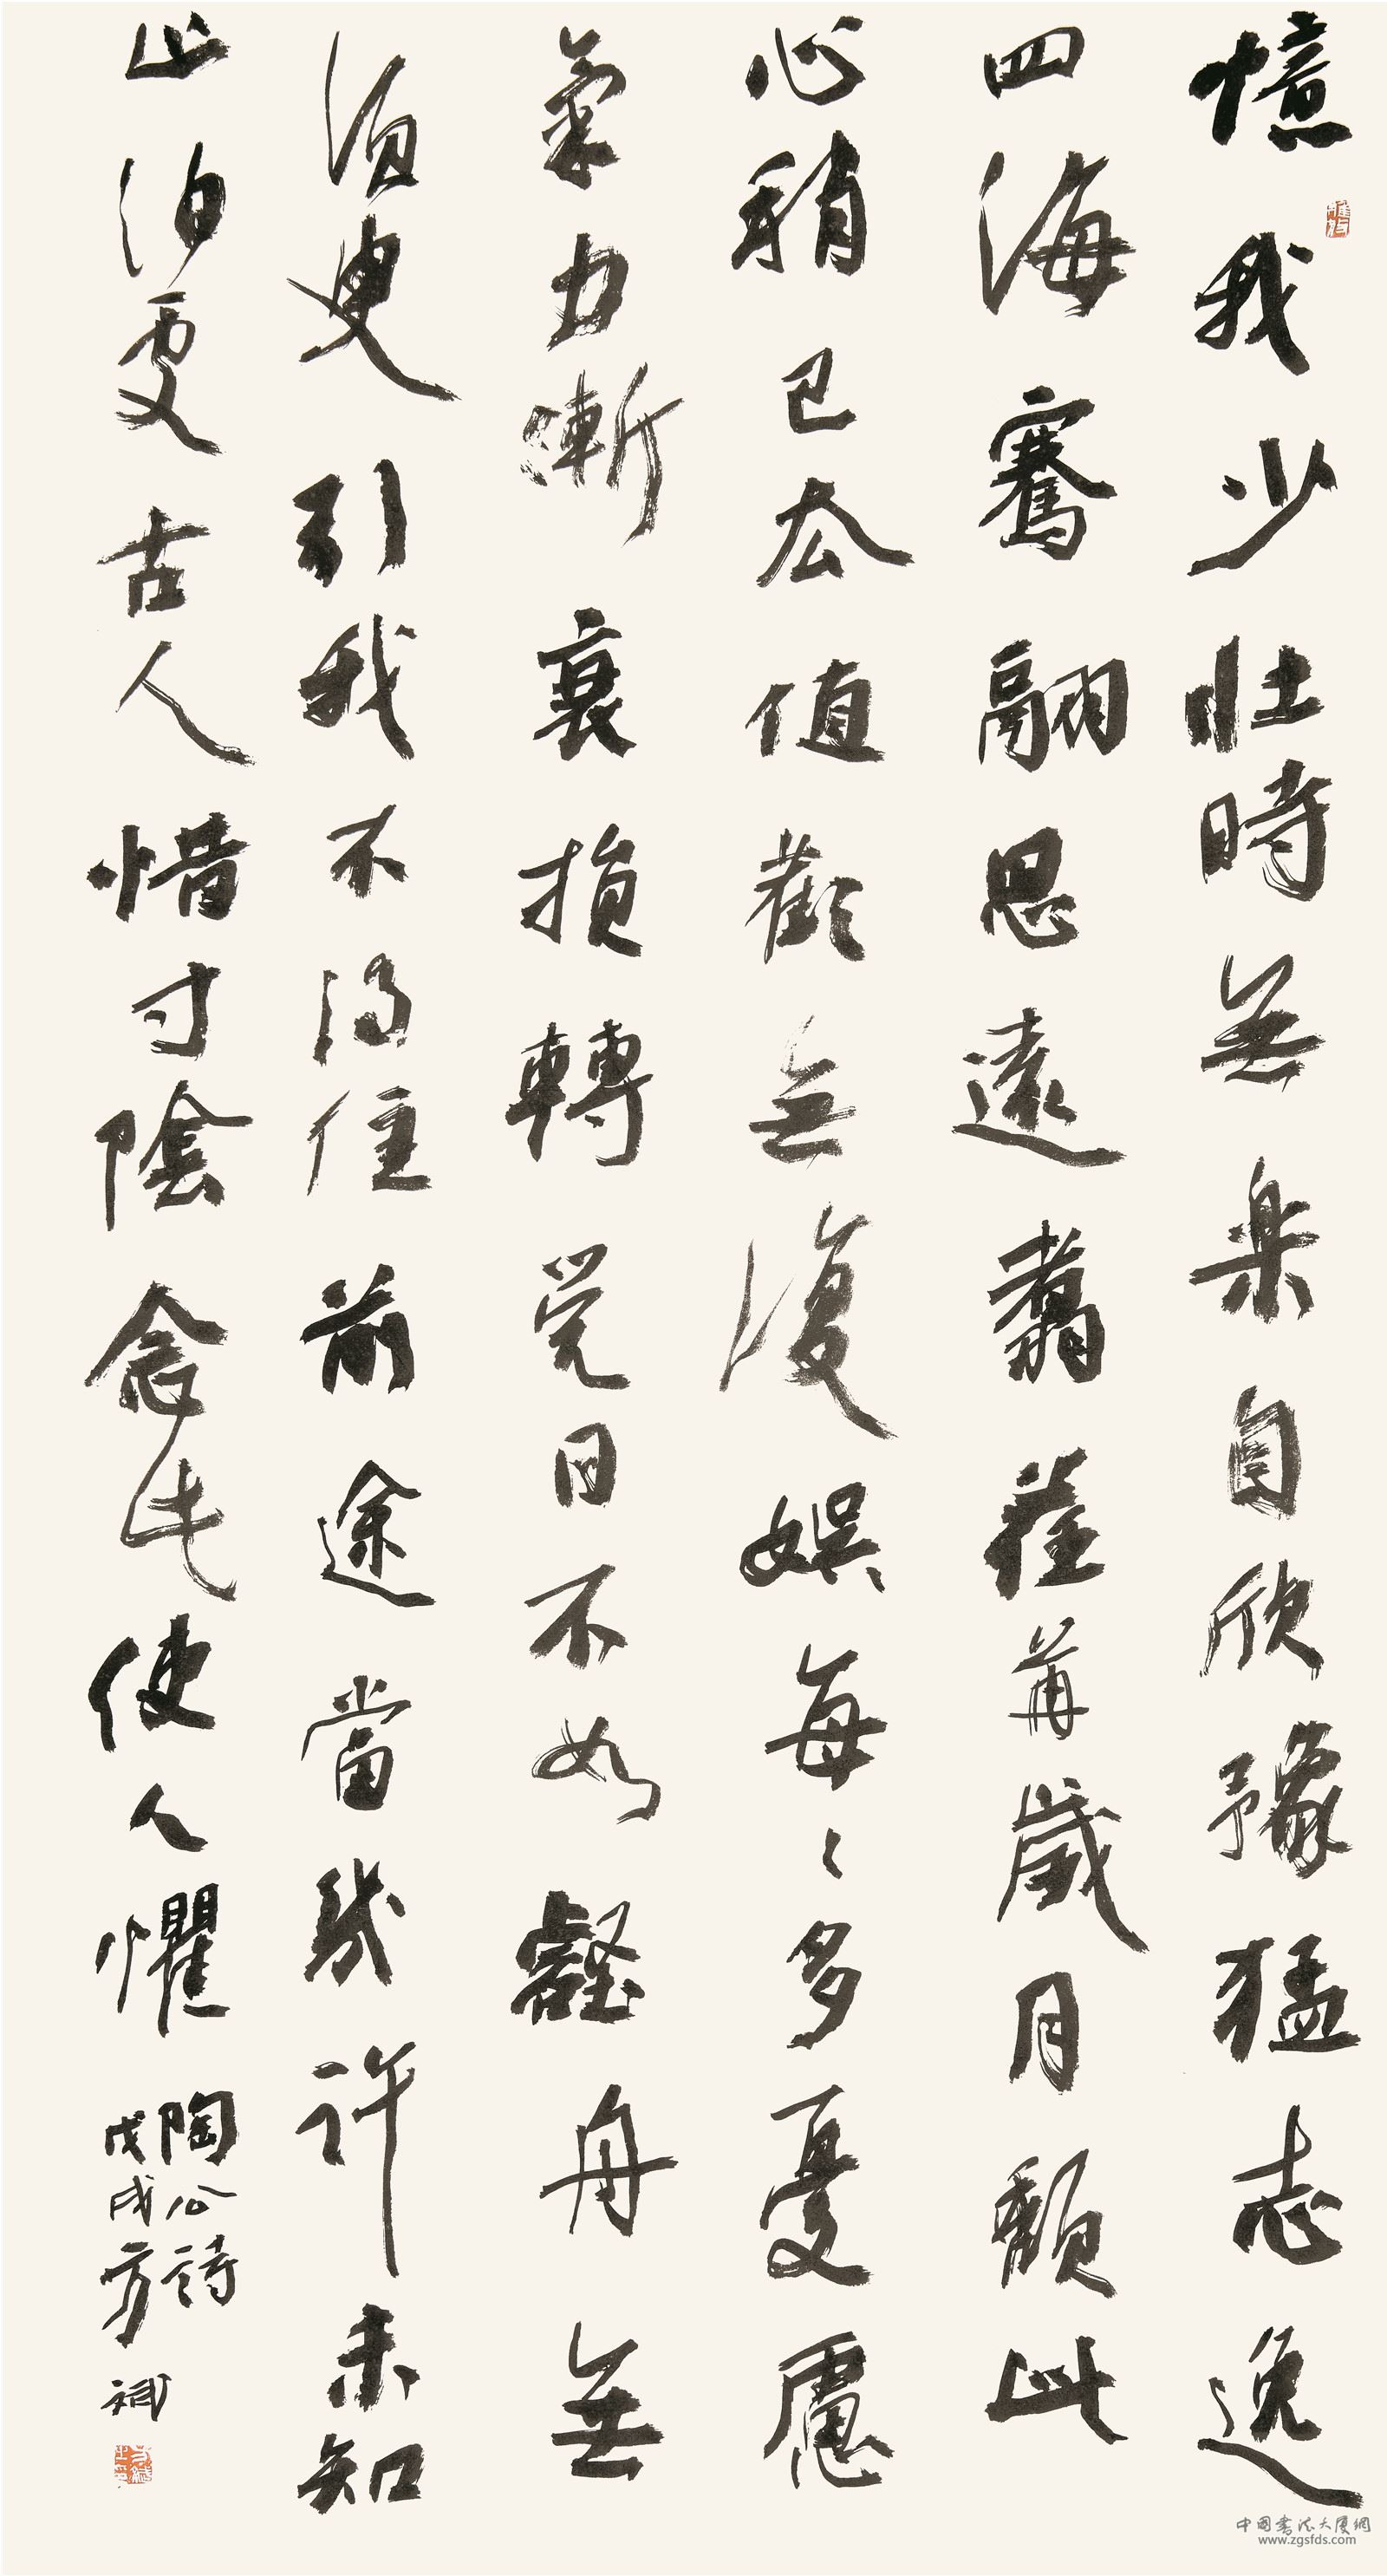 憶我少壯時無楽自欣豫猛志逸
四海騫翮思遠翥荏苒歲月頹此
心稍已去值歡無復娛每〻多憂慮
氣力漸衰損轉覺日不如壑舟無
須臾引我不得住前途當幾許未知
止泊處古人惜寸陰念此使人懼
陶公詩
戊戌方斌
中国書法大厦網
www.zgsfds.com